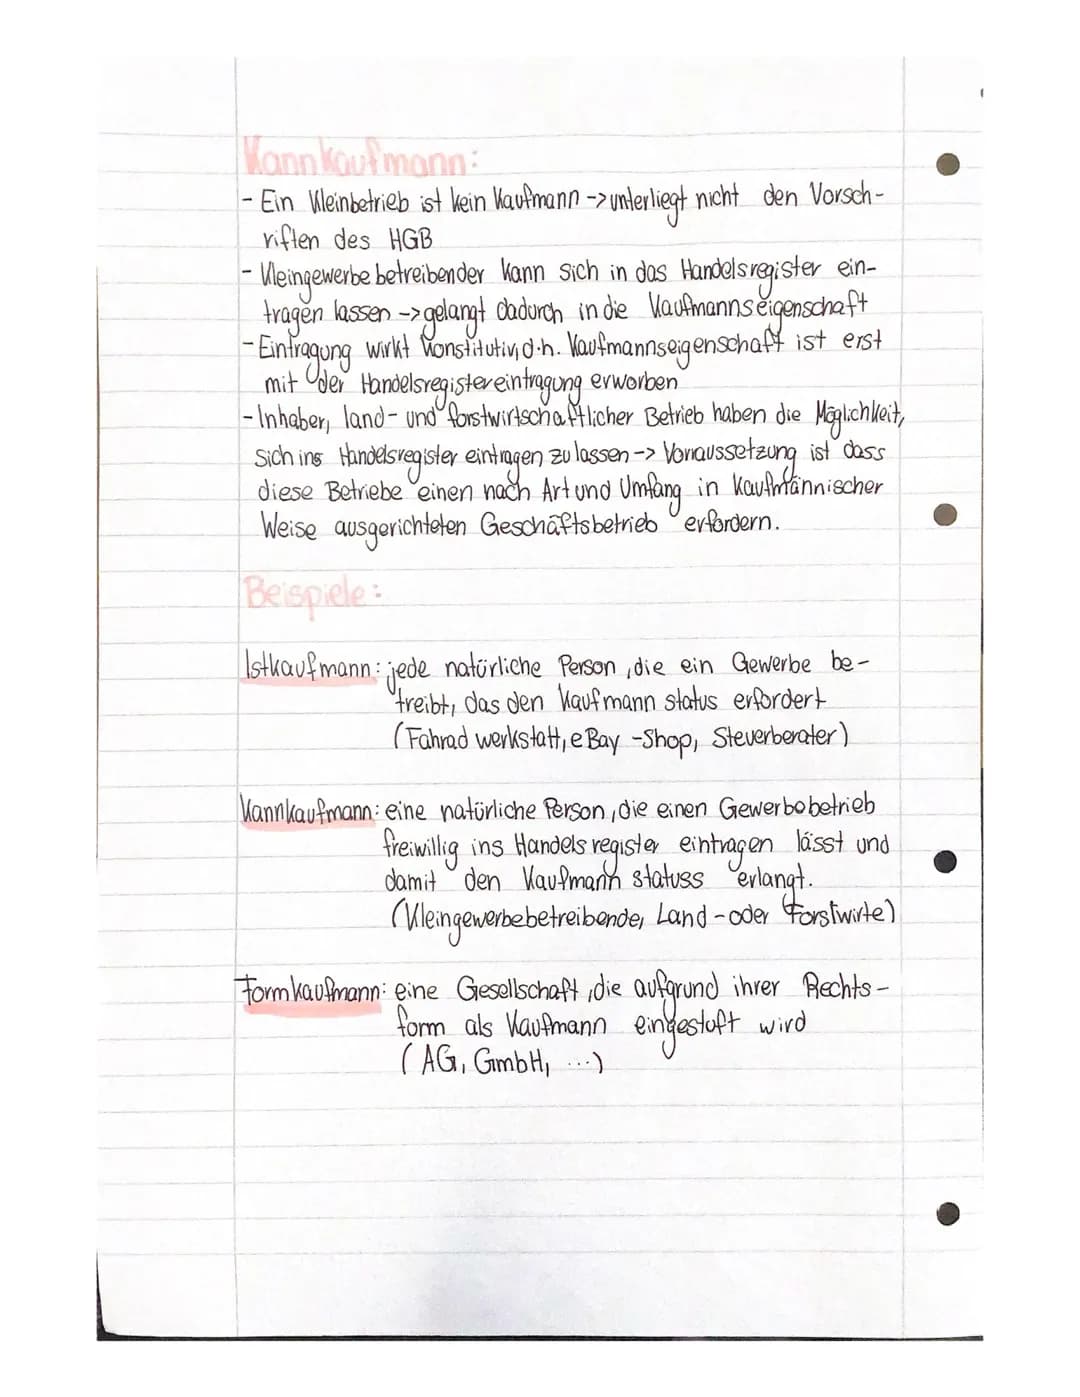 Kannkaufmann:
- Ein Kleinbetrieb ist kein Kaufmann -> unterliegt nicht den Vorsch-
riften des HGB
- Kleingewerbebetreibender kann sich in das Handelsregister ein-
tragen lassen -> gelangt dadurch in die Kaufmannseigenschaft
- Eintragung wirkt konstitutiv, d.h. Kaufmannseigenschaft ist erst
mit der Handelsregistereintragung erworben
- Inhaber, land- und forstwirtschaftlicher Betrieb haben die Möglichkeit,
sich ins Handelsregister eintragen zu lassen -> Voraussetzung ist dass
diese Betriebe einen nach Art und Umfang in kaufmännischer
Weise ausgerichteten Geschäftsbetrieb erfordern.
Beispiele:
Istkaufmann: jede natürliche Person, die ein Gewerbe be-
treibt, das den Kaufmann status erfordert
(Fahrad werkstatt, eBay -Shop, Steuerberater)
Kannkaufmann: eine natürliche Person, die einen Gewerbebetrieb
freiwillig ins Handelsregister eintragen lässt und
damit den Kaufmann statuss erlangt.
(Kleingewerbebetreibende, Land- oder Forstwirte)
Formkaufmann: eine Gesellschaft, die aufgrund ihrer Rechts-
form als Kaufmann eingestuft wird
(AG, GmbH, ...)